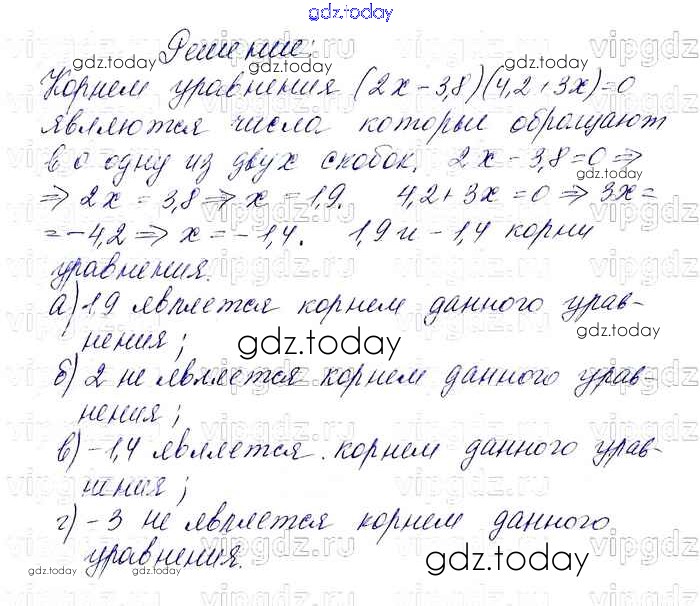 gdz.today
Решение:
Корнем уравнения (2x-3,8)(4,2+3x)=0
являются числа которые обращают
в 0 одну из двух скобок. 2x-3,8=0 ⇒
⇒ 2x=3,8 ⇒ x=1,9. 4,2+3x=0 ⇒ 3x=
=-4,2 ⇒ x=-1,4. 1,9 и -1,4 корни
уравнения.
а) 1,9 является корнем данного урав-
нения;
б) 2 не является корнем данного урав-
нения;
в) -1,4 является корнем данного урав-
нения;
г) -3 не является корнем данного
уравнения.